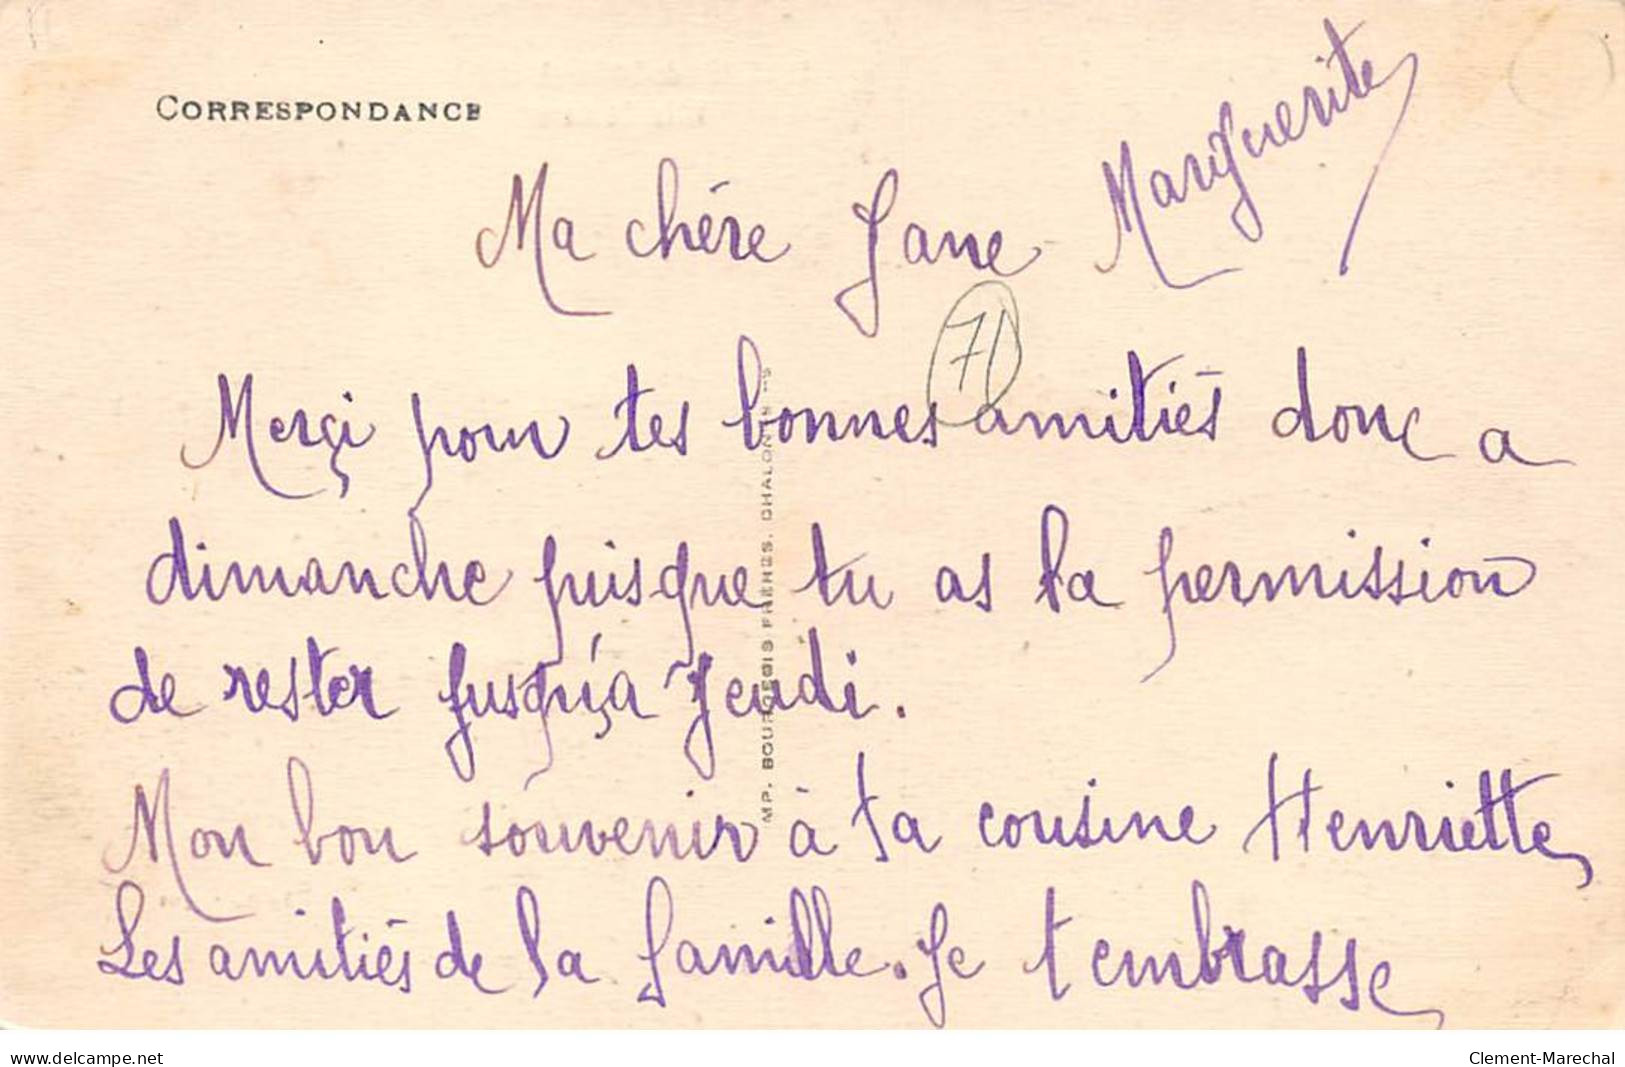 CORRESPONDANCE
Marguerite
Ma chère Jane
71
Merçi pour tes bonnes amitiés donc a
dimanche puisque tu as la permission
de rester jusqu'a Jeudi.
Mon bon souvenir à ta cousine Henriette
Les amitiés de la famille. Je t embrasse
MP. BOURGEOIS FRÈRES. CHALON
www.delcampe.net
Clement-Marechal